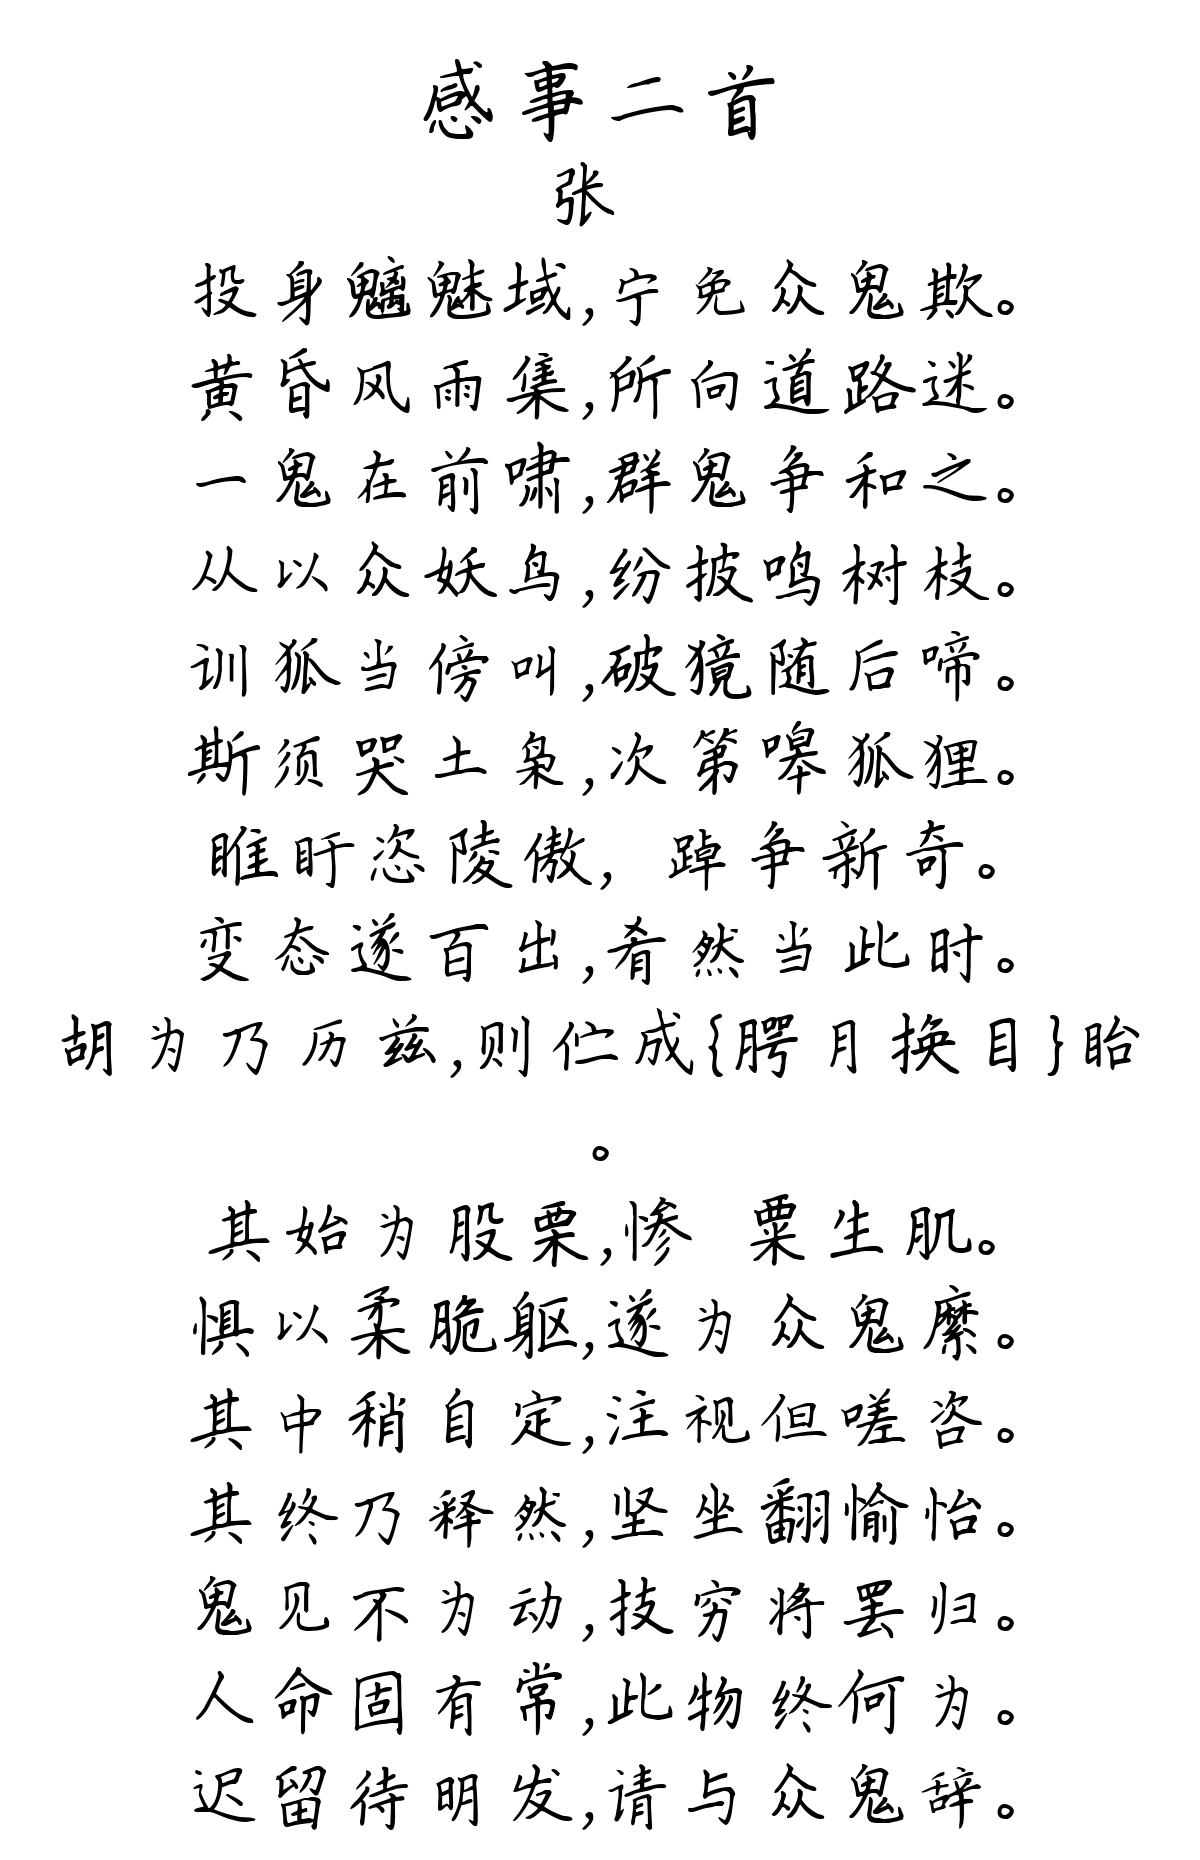 感事二首
张
投身魑魅域,宁免众鬼欺。
黄昏风雨集,所向道路迷。
一鬼在前啸,群鬼争和之。
从以众妖鸟,纷披鸣树枝。
训狐当傍叫,破獍随后啼。
斯须哭土枭,次第嗥狐狸。
睢盱恣陵傲, 踔争新奇。
变态遂百出,肴然当此时。
胡为乃历兹,则伫成{腭月换目}眙
。
其始为股栗,惨 粟生肌。
惧以柔脆躯,遂为众鬼縻。
其中稍自定,注视但嗟咨。
其终乃释然,坚坐翻愉怡。
鬼见不为动,技穷将罢归。
人命固有常,此物终何为。
迟留待明发,请与众鬼辞。